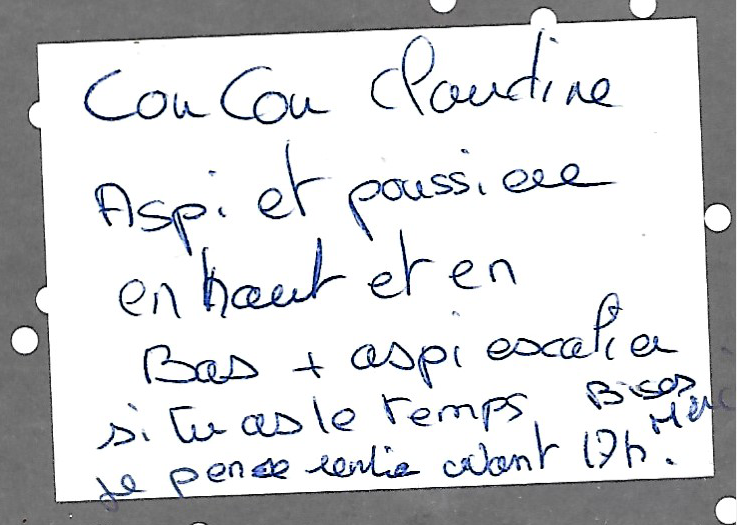 CouCou Claudine
Aspi et poussiere
en haut et en
Bas + aspi escalier
si tu as le temps Bises
Merci
je pense rentrer avant 17h.